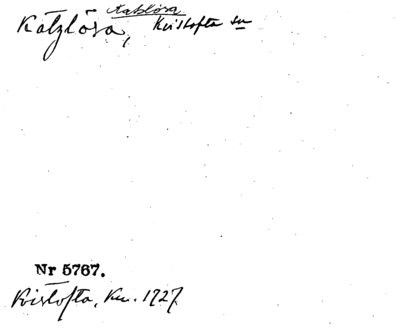 Katslösa
Kätzlösa, Kvistofta sn
Nr 5767.
Kvistofta, Kv. 1727.